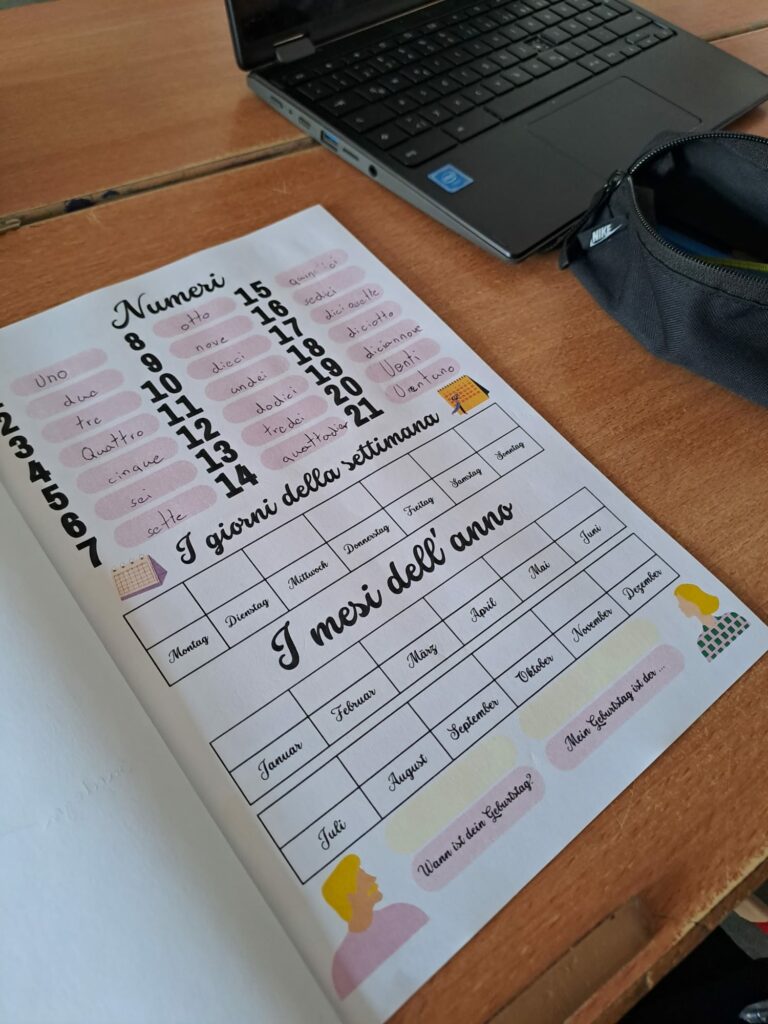 Numeri
Uno
2 due
3 tre
4 Quattro
5 cinque
6 sei
7 sette
8 otto
9 nove
10 dieci
11 undei
12 dodici
13 tredei
14
15
16 sedici
17
18 diciotto
19 diciannove
20 Venti
21 Ventuno
I giorni della settimana
Montag Dienstag Mittwoch Donnerstag Freitag Samstag Sonntag
I mesi dell' anno
Januar Februar März April Mai Juni
Juli August September Oktober November Dezember
Wann ist dein Geburtstag?
Mein Geburtstag ist der ...
intel
NIKE